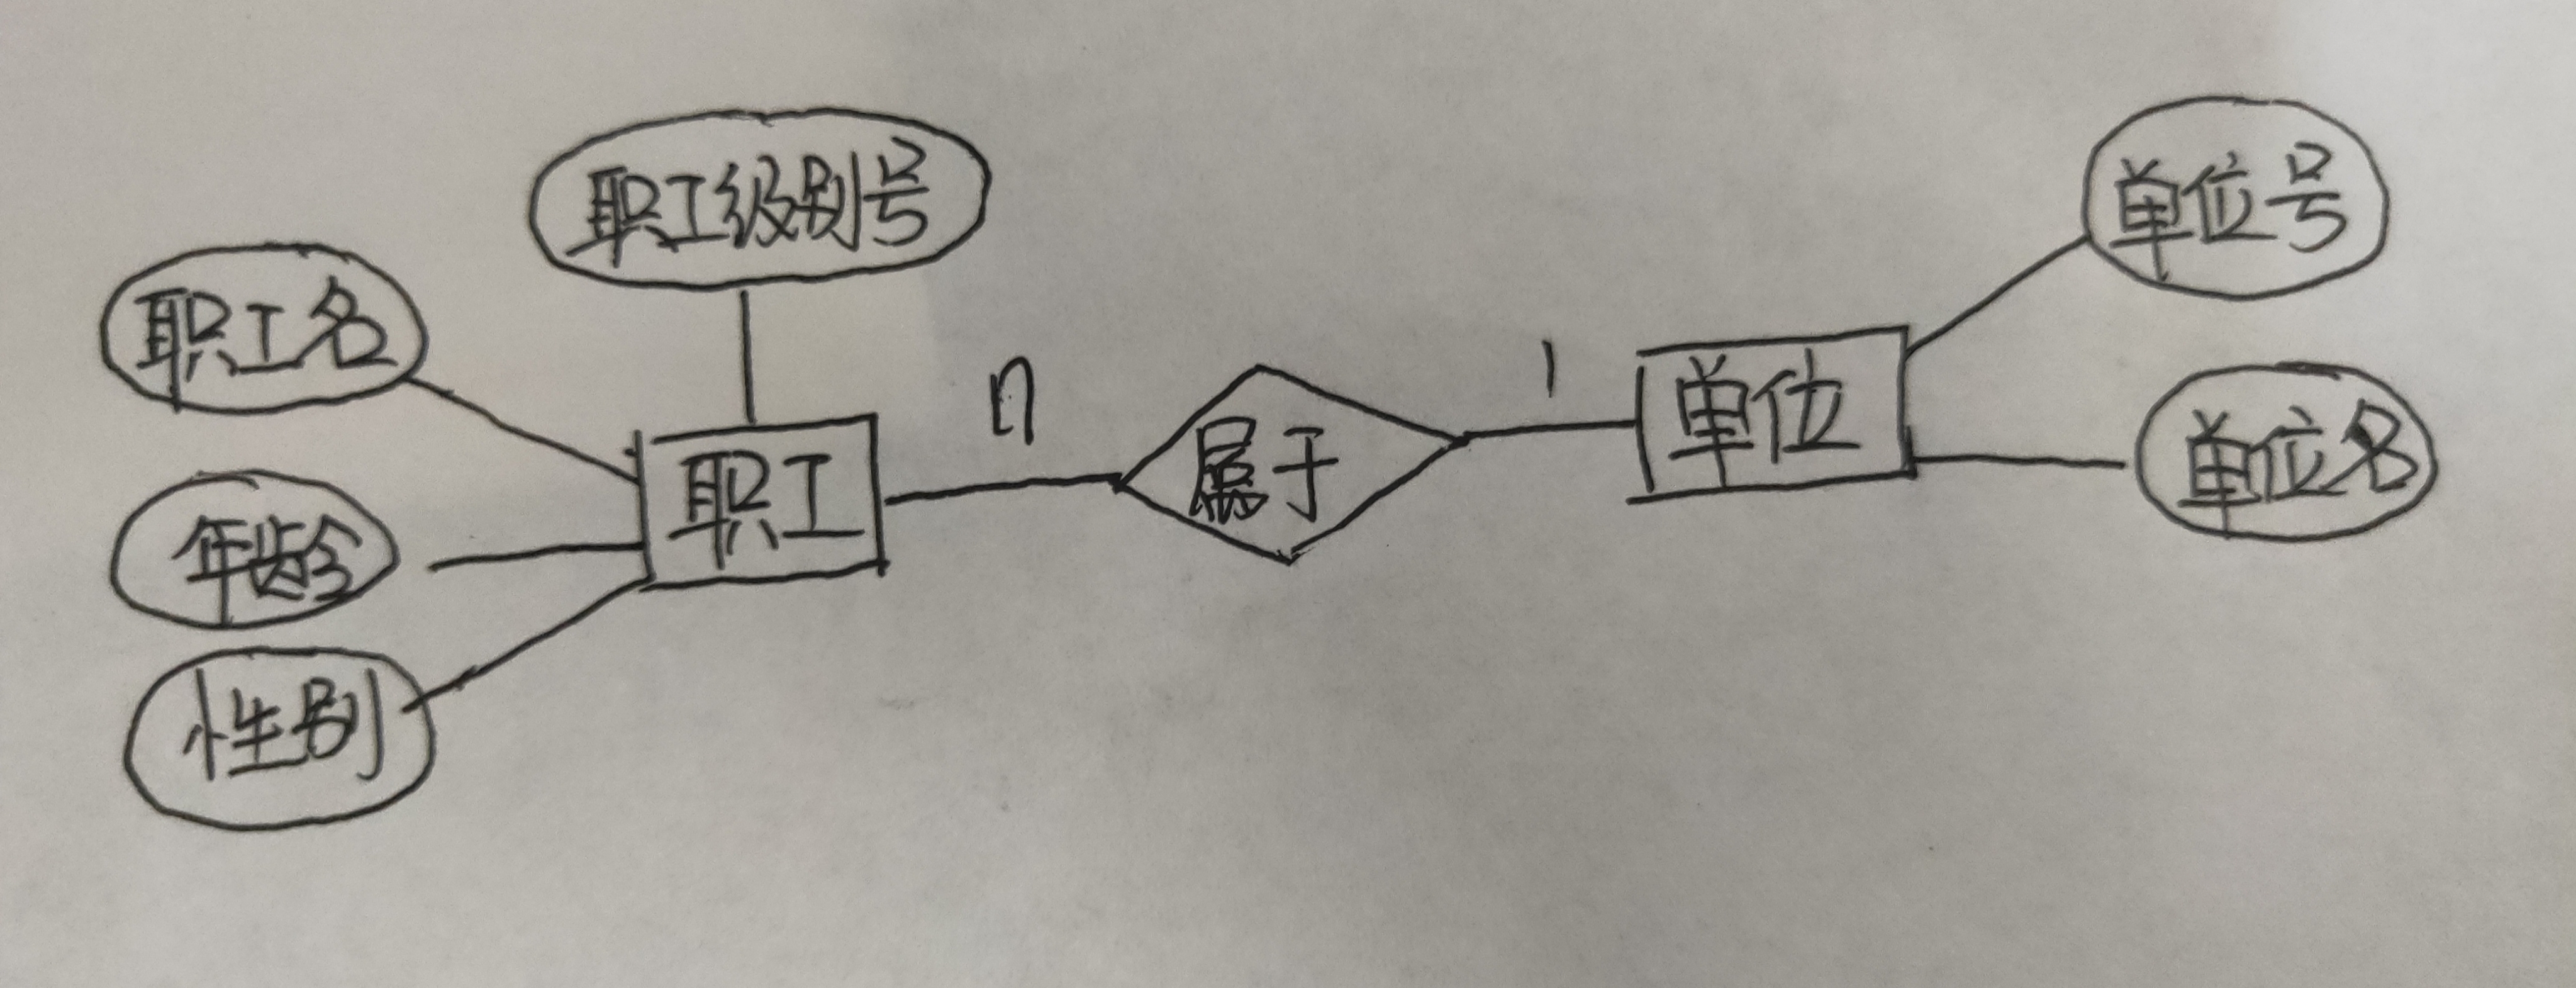 职工级别号
职工名
年龄
性别
职工
n
属于
1
单位
单位号
单位名